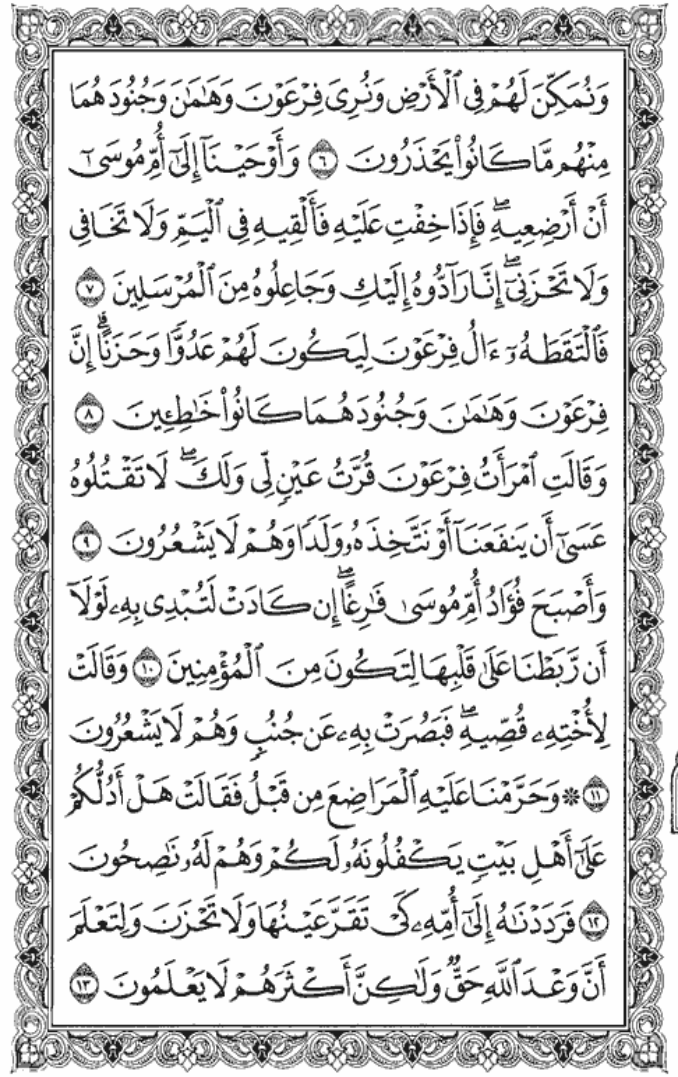 وَنُمَكِّنَ لَهُمْ فِي ٱلْأَرْضِ وَنُرِىَ فِرْعَوْنَ وَهَـٰمَـٰنَ وَجُنُودَهُمَا
مِنْهُم مَّا كَانُوا۟ يَحْذَرُونَ ٦ وَأَوْحَيْنَآ إِلَىٰٓ أُمِّ مُوسَىٰٓ
أَنْ أَرْضِعِيهِ ۖ فَإِذَا خِفْتِ عَلَيْهِ فَأَلْقِيهِ فِى ٱلْيَمِّ وَلَا تَخَافِى
وَلَا تَحْزَنِىٓ ۖ إِنَّا رَآدُّوهُ إِلَيْكِ وَجَاعِلُوهُ مِنَ ٱلْمُرْسَلِينَ ٧
فَٱلْتَقَطَهُۥٓ ءَالُ فِرْعَوْنَ لِيَكُونَ لَهُمْ عَدُوًّا وَحَزَنًا ۗ إِنَّ
فِرْعَوْنَ وَهَـٰمَـٰنَ وَجُنُودَهُمَا كَانُوا۟ خَـٰطِـِٔينَ ٨
وَقَالَتِ ٱمْرَأَتُ فِرْعَوْنَ قُرَّتُ عَيْنٍ لِّى وَلَكَ ۖ لَا تَقْتُلُوهُ
عَسَىٰٓ أَن يَنفَعَنَآ أَوْ نَتَّخِذَهُۥ وَلَدًا وَهُمْ لَا يَشْعُرُونَ ٩
وَأَصْبَحَ فُؤَادُ أُمِّ مُوسَىٰ فَـٰرِغًا ۖ إِن كَادَتْ لَتُبْدِى بِهِۦ لَوْلَآ
أَن رَّبَطْنَا عَلَىٰ قَلْبِهَا لِتَكُونَ مِنَ ٱلْمُؤْمِنِينَ ١٠ وَقَالَتْ
لِأُخْتِهِۦ قُصِّيهِ ۖ فَبَصُرَتْ بِهِۦ عَن جُنُبٍ وَهُمْ لَا يَشْعُرُونَ
١١ ۞ وَحَرَّمْنَا عَلَيْهِ ٱلْمَرَاضِعَ مِن قَبْلُ فَقَالَتْ هَلْ أَدُلُّكُمْ
عَلَىٰٓ أَهْلِ بَيْتٍ يَكْفُلُونَهُۥ لَكُمْ وَهُمْ لَهُۥ نَـٰصِحُونَ
١٢ فَرَدَدْنَـٰهُ إِلَىٰٓ أُمِّهِۦ كَىْ تَقَرَّ عَيْنُهَا وَلَا تَحْزَنَ وَلِتَعْلَمَ
أَنَّ وَعْدَ ٱللَّهِ حَقٌّ وَلَـٰكِنَّ أَكْثَرَهُمْ لَا يَعْلَمُونَ ١٣